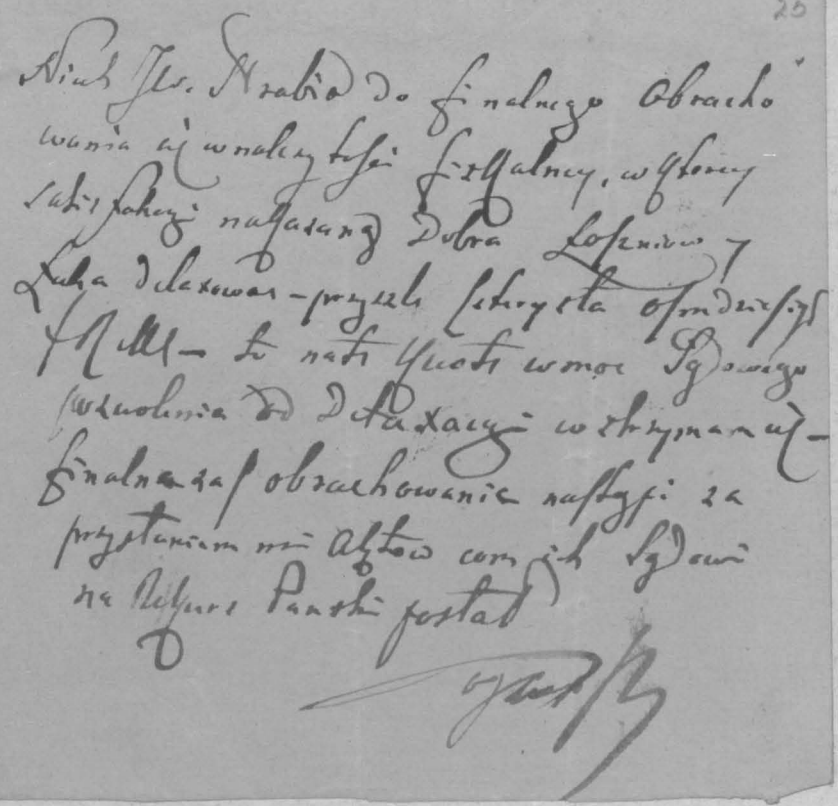 20
Niech JW. Hrabia do finalnego Obracho
wania się w należytości fiskalney, w ktorey
satisfakcyi nakazaną Dobra Łoszniow y
Łuka detaxowac – przyszle czterysta osmdziesiąt
to na te kwote w moc Sądowego
pozwolenia od Detaxacyi wstrzymam się –
finalne zaś obrachowanie nastąpi za
przysłaniem mi Aktow com ich Sądowi
na Rekurs Pański posłał